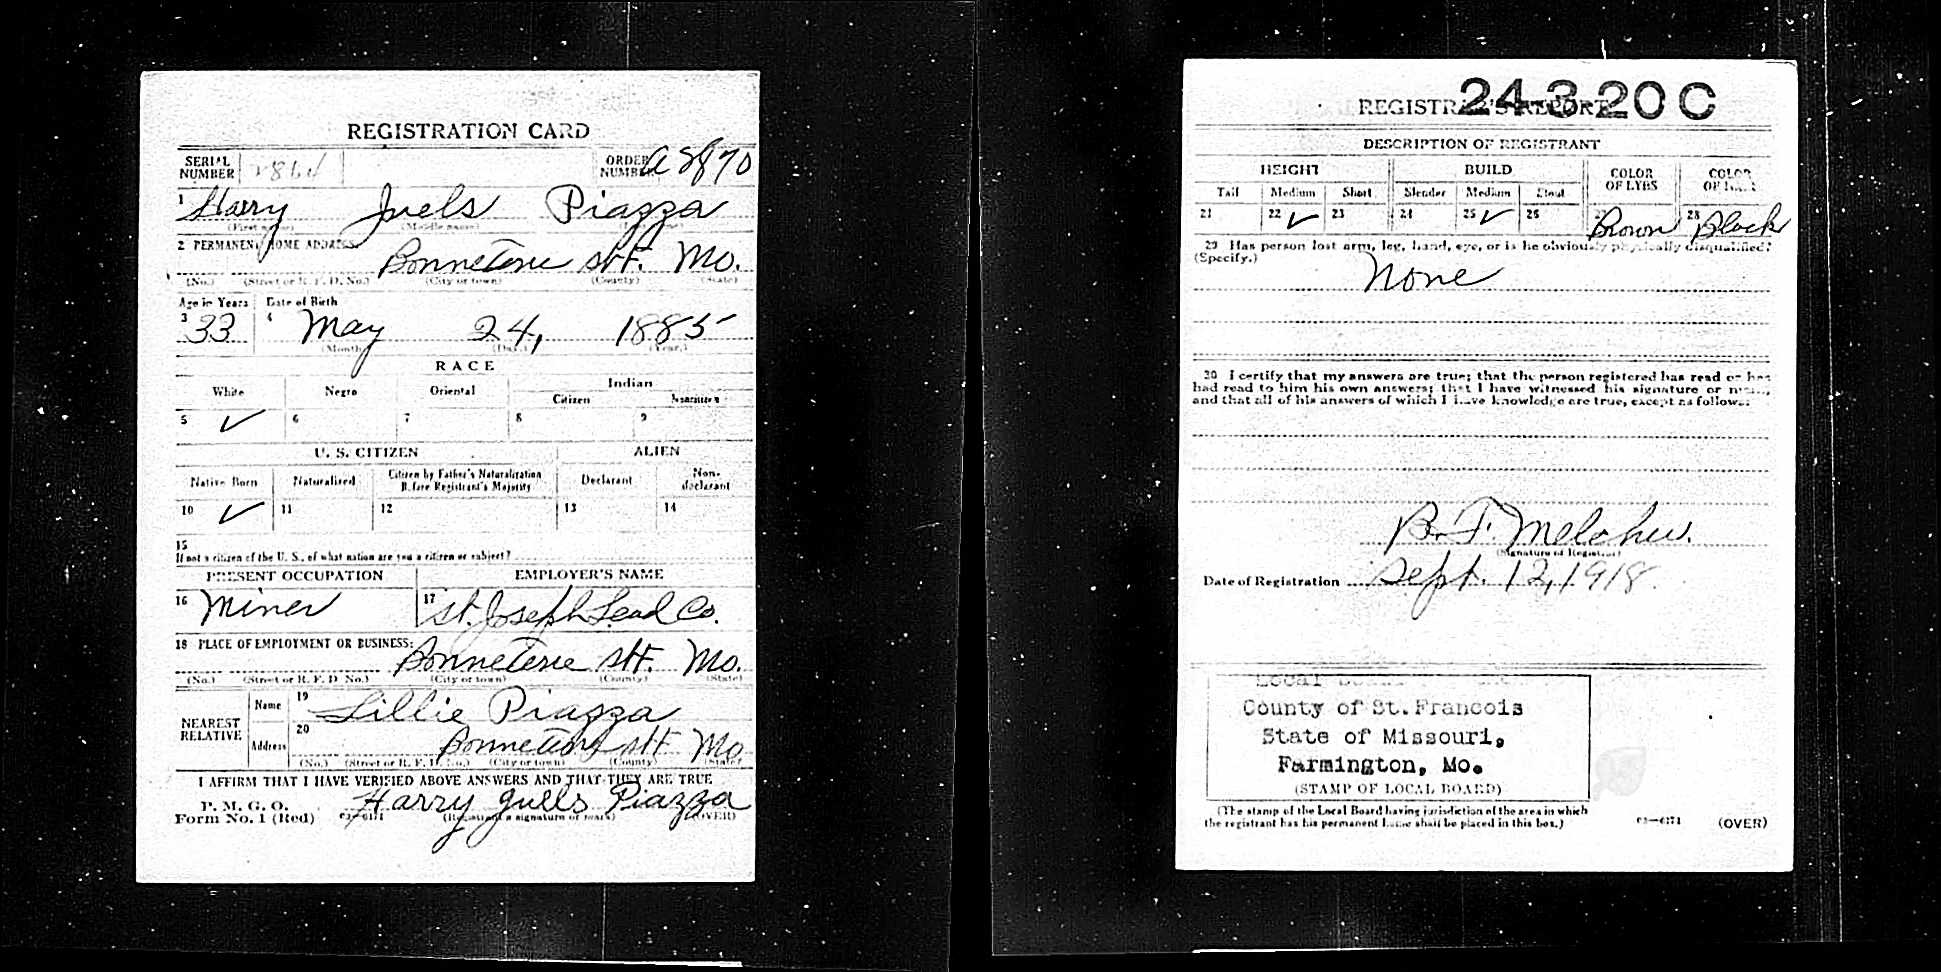 REGISTRATION CARD
SERIAL NUMBER
ORDER NUMBER A 2870
1 Harry Juels Piazza
(First name) (Middle name)
2 PERMANENT HOME ADDRESS:
Bonneterre St.F. Mo.
(No.) (Street or R. F. D. No.) (City or town) (County) (State)
Age in Years Date of Birth
3 33 4 May 24, 1885
(Month) (Day.) (Year.)
RACE
White Negro Oriental Indian
Citizen Noncitizen
5 ✓ 6 7 8 9
U. S. CITIZEN ALIEN
Native Born Naturalized Citizen by Father's Naturalization Before Registrant's Majority Declarant Non-declarant
10 ✓ 11 12 13 14
15
If not a citizen of the U. S., of what nation are you a citizen or subject?
PRESENT OCCUPATION EMPLOYER'S NAME
16 Miner 17 St. Joseph Lead Co.
18 PLACE OF EMPLOYMENT OR BUSINESS:
Bonneterre St.F. Mo.
(No.) (Street or R. F. D. No.) (City or town) (County) (State)
NEAREST RELATIVE
Name 19 Lillie Piazza
Address 20 Bonneterre St.F. Mo
(No.) (Street or R. F. D. No.) (City or town) (County) (State)
I AFFIRM THAT I HAVE VERIFIED ABOVE ANSWERS AND THAT THEY ARE TRUE
P. M. G. O.
Form No. 1 (Red) 03—6171 Harry Juells Piazza
(Registrant's signature or mark) (OVER)
24-3-20 C
REGISTRAR'S REPORT
DESCRIPTION OF REGISTRANT
HEIGHT BUILD COLOR OF EYES COLOR OF HAIR
Tall Medium Short Slender Medium Stout
21 22 ✓ 23 24 25 ✓ 26 27 Brown 28 Black
29 Has person lost arm, leg, hand, eye, or is he obviously physically disqualified?
(Specify.) None
30 I certify that my answers are true; that the person registered has read or has
had read to him his own answers; that I have witnessed his signature or mark,
and that all of his answers of which I have knowledge are true, except as follows:
B. F.
(Signature of Registrar)
Date of Registration Sept. 12, 1918
County of St. Francois
State of Missouri,
Farmington, Mo.
(STAMP OF LOCAL BOARD)
(The stamp of the Local Board having jurisdiction of the area in which
the registrant has his permanent home shall be placed in this box.)
03—6171 (OVER)